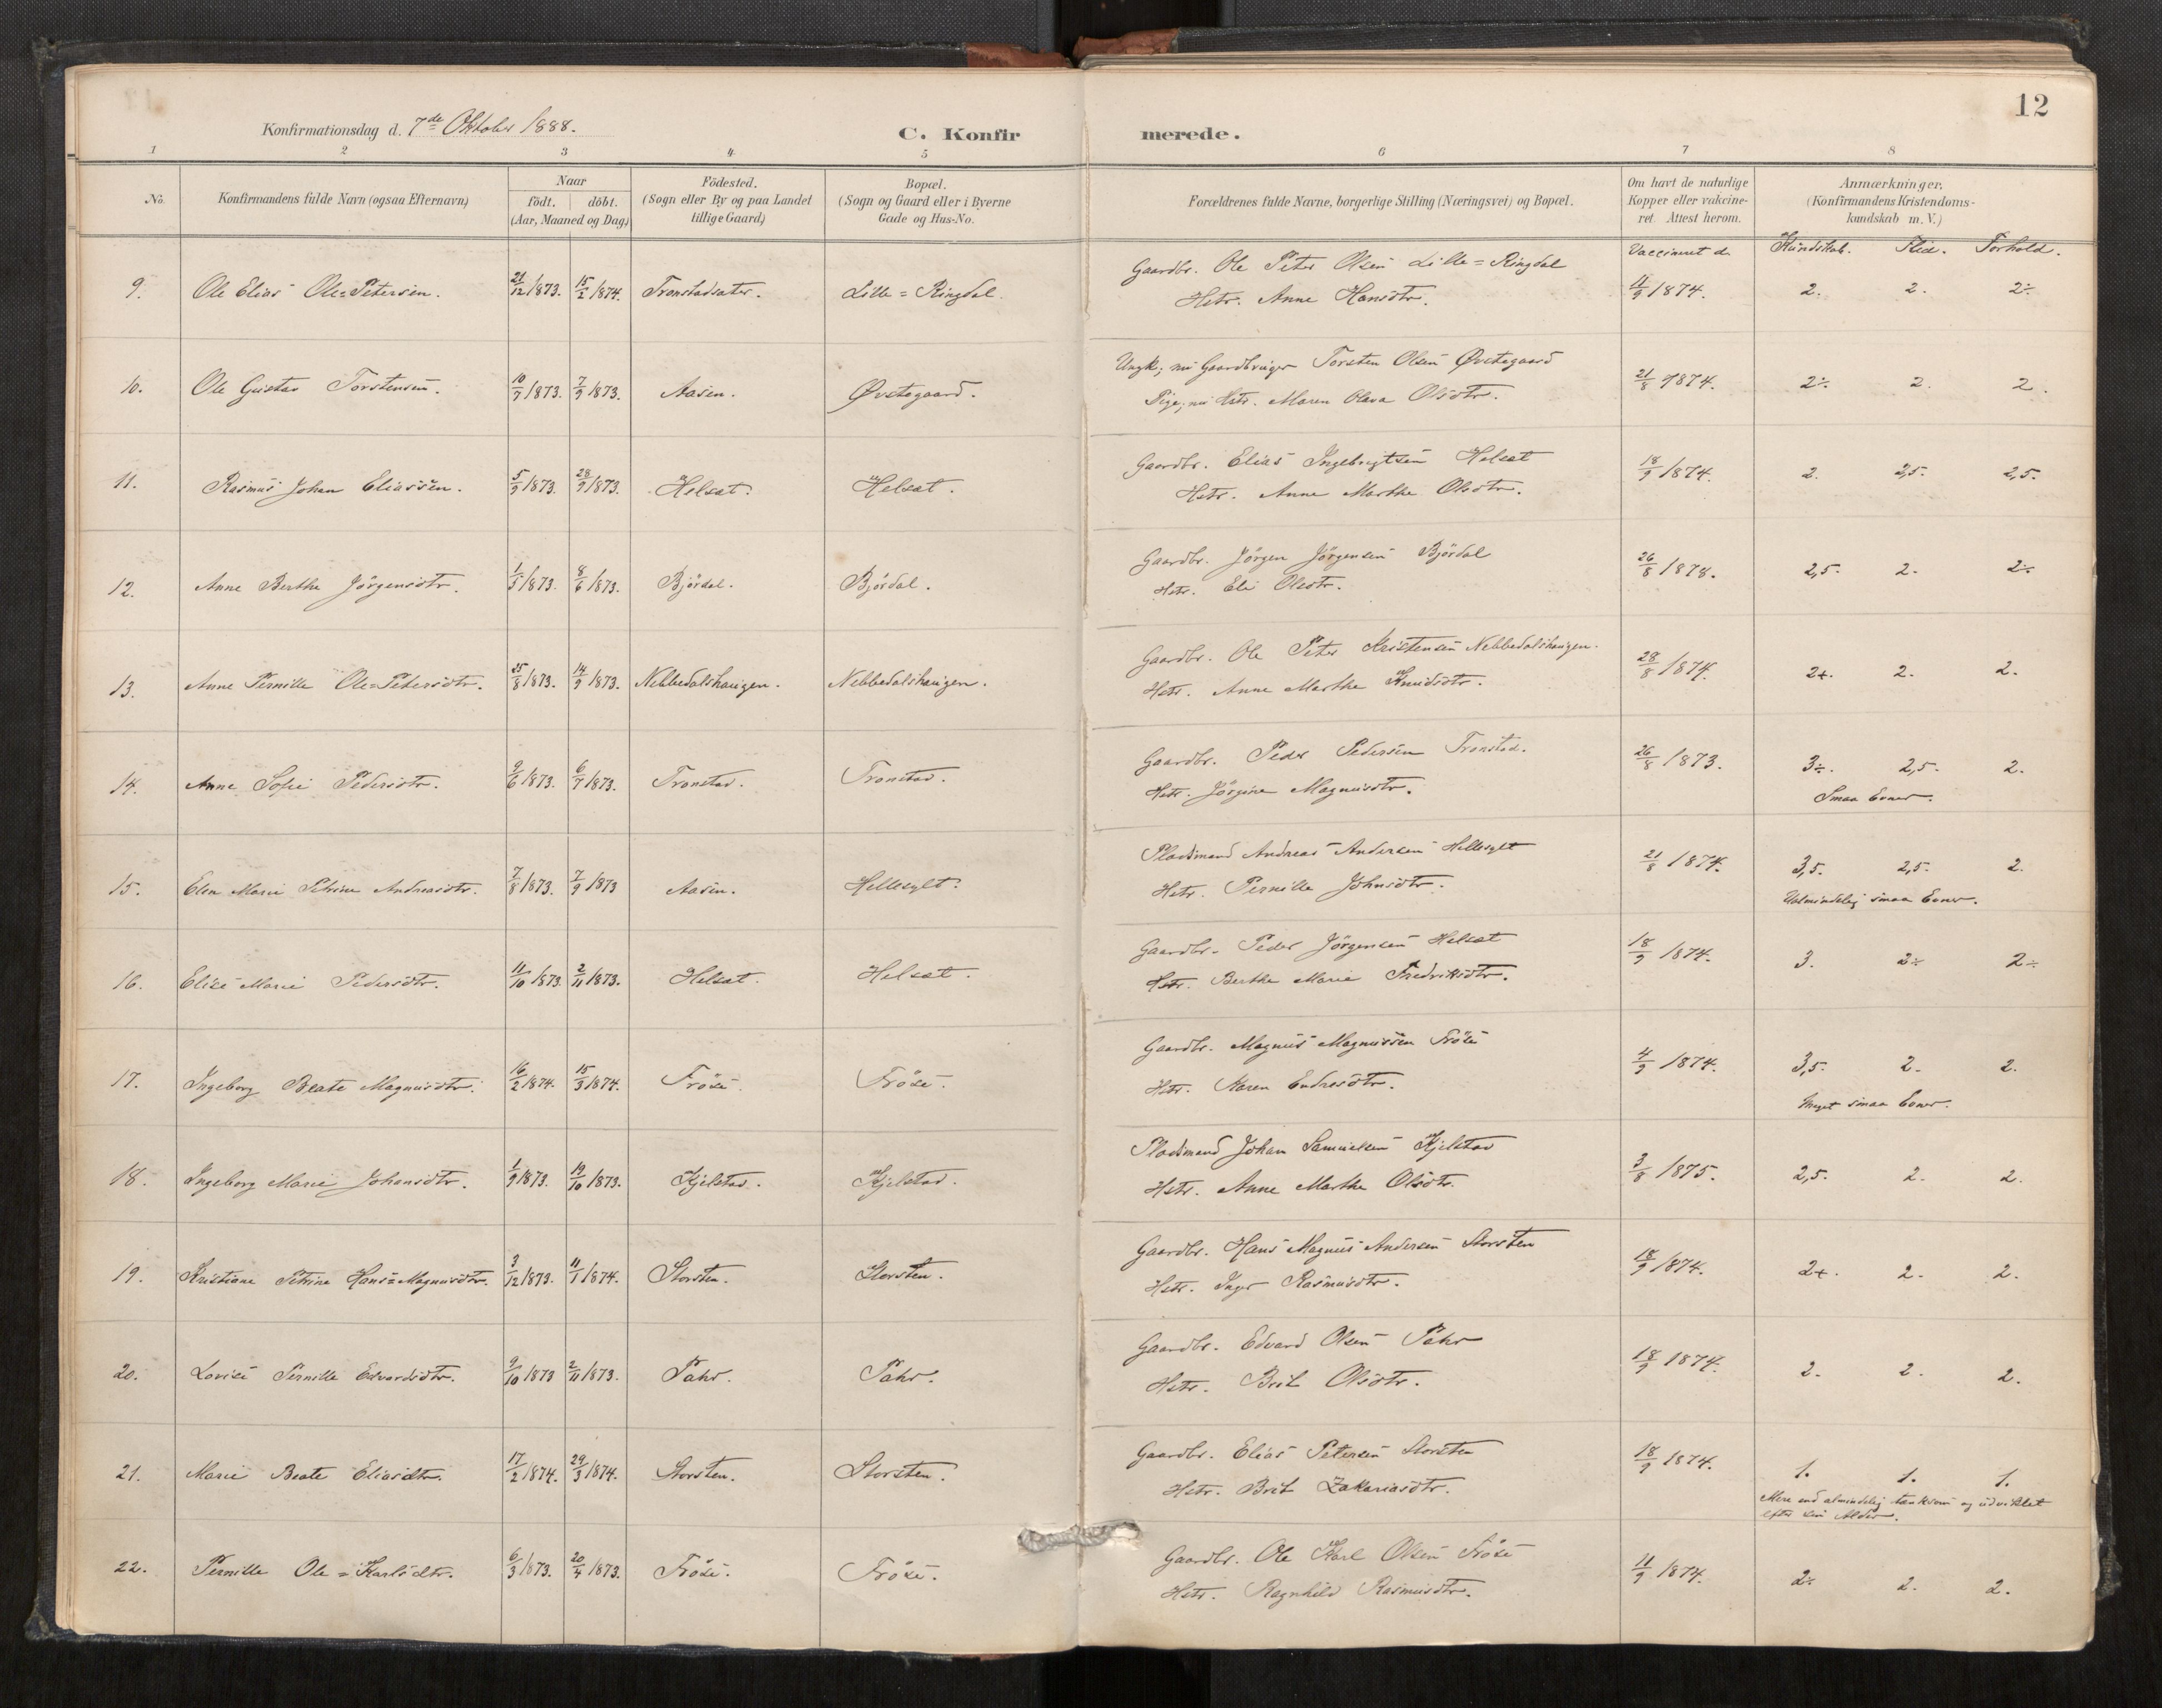 12
Konfirmationsdag d. 7de Oktober 1888.
C. Konfirmerede.
1 2 3 4 5 6 7 8
No.
Konfirmandens fulde Navn (ogsaa Efternavn)
Naar
født. døbt.
(Aar, Maaned og Dag)
Födested.
(Sogn eller By og paa Landet
tillige Gaard)
Bopæl.
(Sogn og Gaard eller i Byerne
Gade og Hus-No.
Forældrenes fulde Navne, borgerlige Stilling (Næringsvei) og Bopæl.
Om havt de naturlige
Kopper eller vakcine-
ret. Attest herom.
Anmærkninger.
(Konfirmandens Kristendoms-
kundskab m. V.)
Vaccineret d. Kundskab. Flid. Forhold.
9. Ole Elias Ole=Petersen. 21/12 1873. 15/2 1874. Tronstadsæter. Lille=Ringdal. Gaardbr. Ole Peter Olsen Lille=Ringdal 11/9 1874. 2. 2. 2÷
Hstr. Anne Hansdtr.
10. Ole Gustav Torstensen. 10/7 1873. 7/9 1873. Aasen. Øvstegaard. Ungk; nu Gaardbruger Torsten Olsen Øvstegaard 21/8 1874. 2÷ 2. 2.
Pige; nu Hstr. Maren Olava Olsdtr.
11. Rasmus Johan Eliassen. 5/9 1873. 28/9 1873. Helsæt. Helsæt. Gaardbr. Elias Ingebrigtsen Helsæt 18/9 1874. 2. 2,5. 2,5.
Hstr. Anne Marthe Olsdtr.
12. Anne Berthe Jörgensdtr. 1/5 1873. 8/6 1873. Björdal. Björdal. Gaardbr. Jörgen Jörgensen Björdal 26/8 1878. 2,5. 2. 2÷
Hstr. Eli Olsdtr.
13. Anne Pernille Ole=Petersdtr. 25/8 1873. 14/9 1873. Nebbedalshaugen. Nebbedalshaugen. Gaardbr. Ole Peter Kristensen Nebbedalshaugen. 28/8 1874. 2+. 2. 2.
Hstr. Anne Marthe Knudsdtr.
14. Anne Sofie Pedersdtr. 9/6 1873. 6/7 1873. Tronstad. Tronstad. Gaardbr. Peder Pedersen Tronstad. 26/8 1873. 3÷. 2,5. 2.
Hstr. Jörgine Magnusdtr. Smaa Evner.
15. Elen Marie Petrine Andreasdtr. 7/8 1873. 7/9 1873 Aasen. Hellesylt. Pladsmand Andreas Andersen Hellesylt 21/8 1874. 3,5. 2,5. 2.
Hstr. Pernille Johnsdtr. Ualmindelig smaa Evner.
16. Elise Marie Pedersdtr. 11/10 1873. 2/11 1873. Helsæt. Helsæt. Gaardbr. Peder Jörgensen Helsæt 18/9 1874. 3. 2÷ 2÷
Hstr. Berthe Marie Fredriksdtr.
17. Ingeborg Beate Magnusdtr. 16/2 1874. 15/3 1874. Fröse. Fröse. Gaardbr. Magnus Magnussen Fröse 4/9 1874. 3,5. 2. 2.
Hstr. Karen Endresdtr. Meget smaa Evner.
18. Ingeborg Marie Johansdtr. 1/9 1873. 19/10 1873. Kjelstad. Kjelstad. Pladsmand Johan Samuelsen Kjelstad 3/8 1875. 2,5. 2. 2.
Hstr. Anne Marthe Olsdtr.
19. Kristiane Petrine Hans=Magnusdtr. 3/12 1873. 11/1 1874. Storsten. Storsten. Gaardbr. Hans Magnus Andersen Storsten 18/9 1874. 2+. 2. 2.
Hstr. Inger Rasmusdtr.
20. Lovise Pernille Edvardsdtr. 9/10 1873 2/11 1873. Tahr. Tahr. Gaardbr. Edvard Olsen Tahr 18/9 1874. 2. 2. 2.
Hstr. Brit Olsdtr.
21. Marie Beate Eliasdtr. 17/2 1874. 29/3 1874. Storsten. Storsten. Gaardbr. Elias Petersen Storsten 18/9 1874. 1. 1. 1.
Hstr. Brit Zakariasdtr. Mere end almindelig tænksom og udviklet
efter sin Alder.
22. Pernille Ole=Karlsdtr. 6/3 1873. 20/4 1873. Fröse. Fröse. Gaardbr. Ole Karl Olsen Fröse 11/9 1874. 2÷ 2. 2.
Hstr. Ragnhild Rasmusdtr.